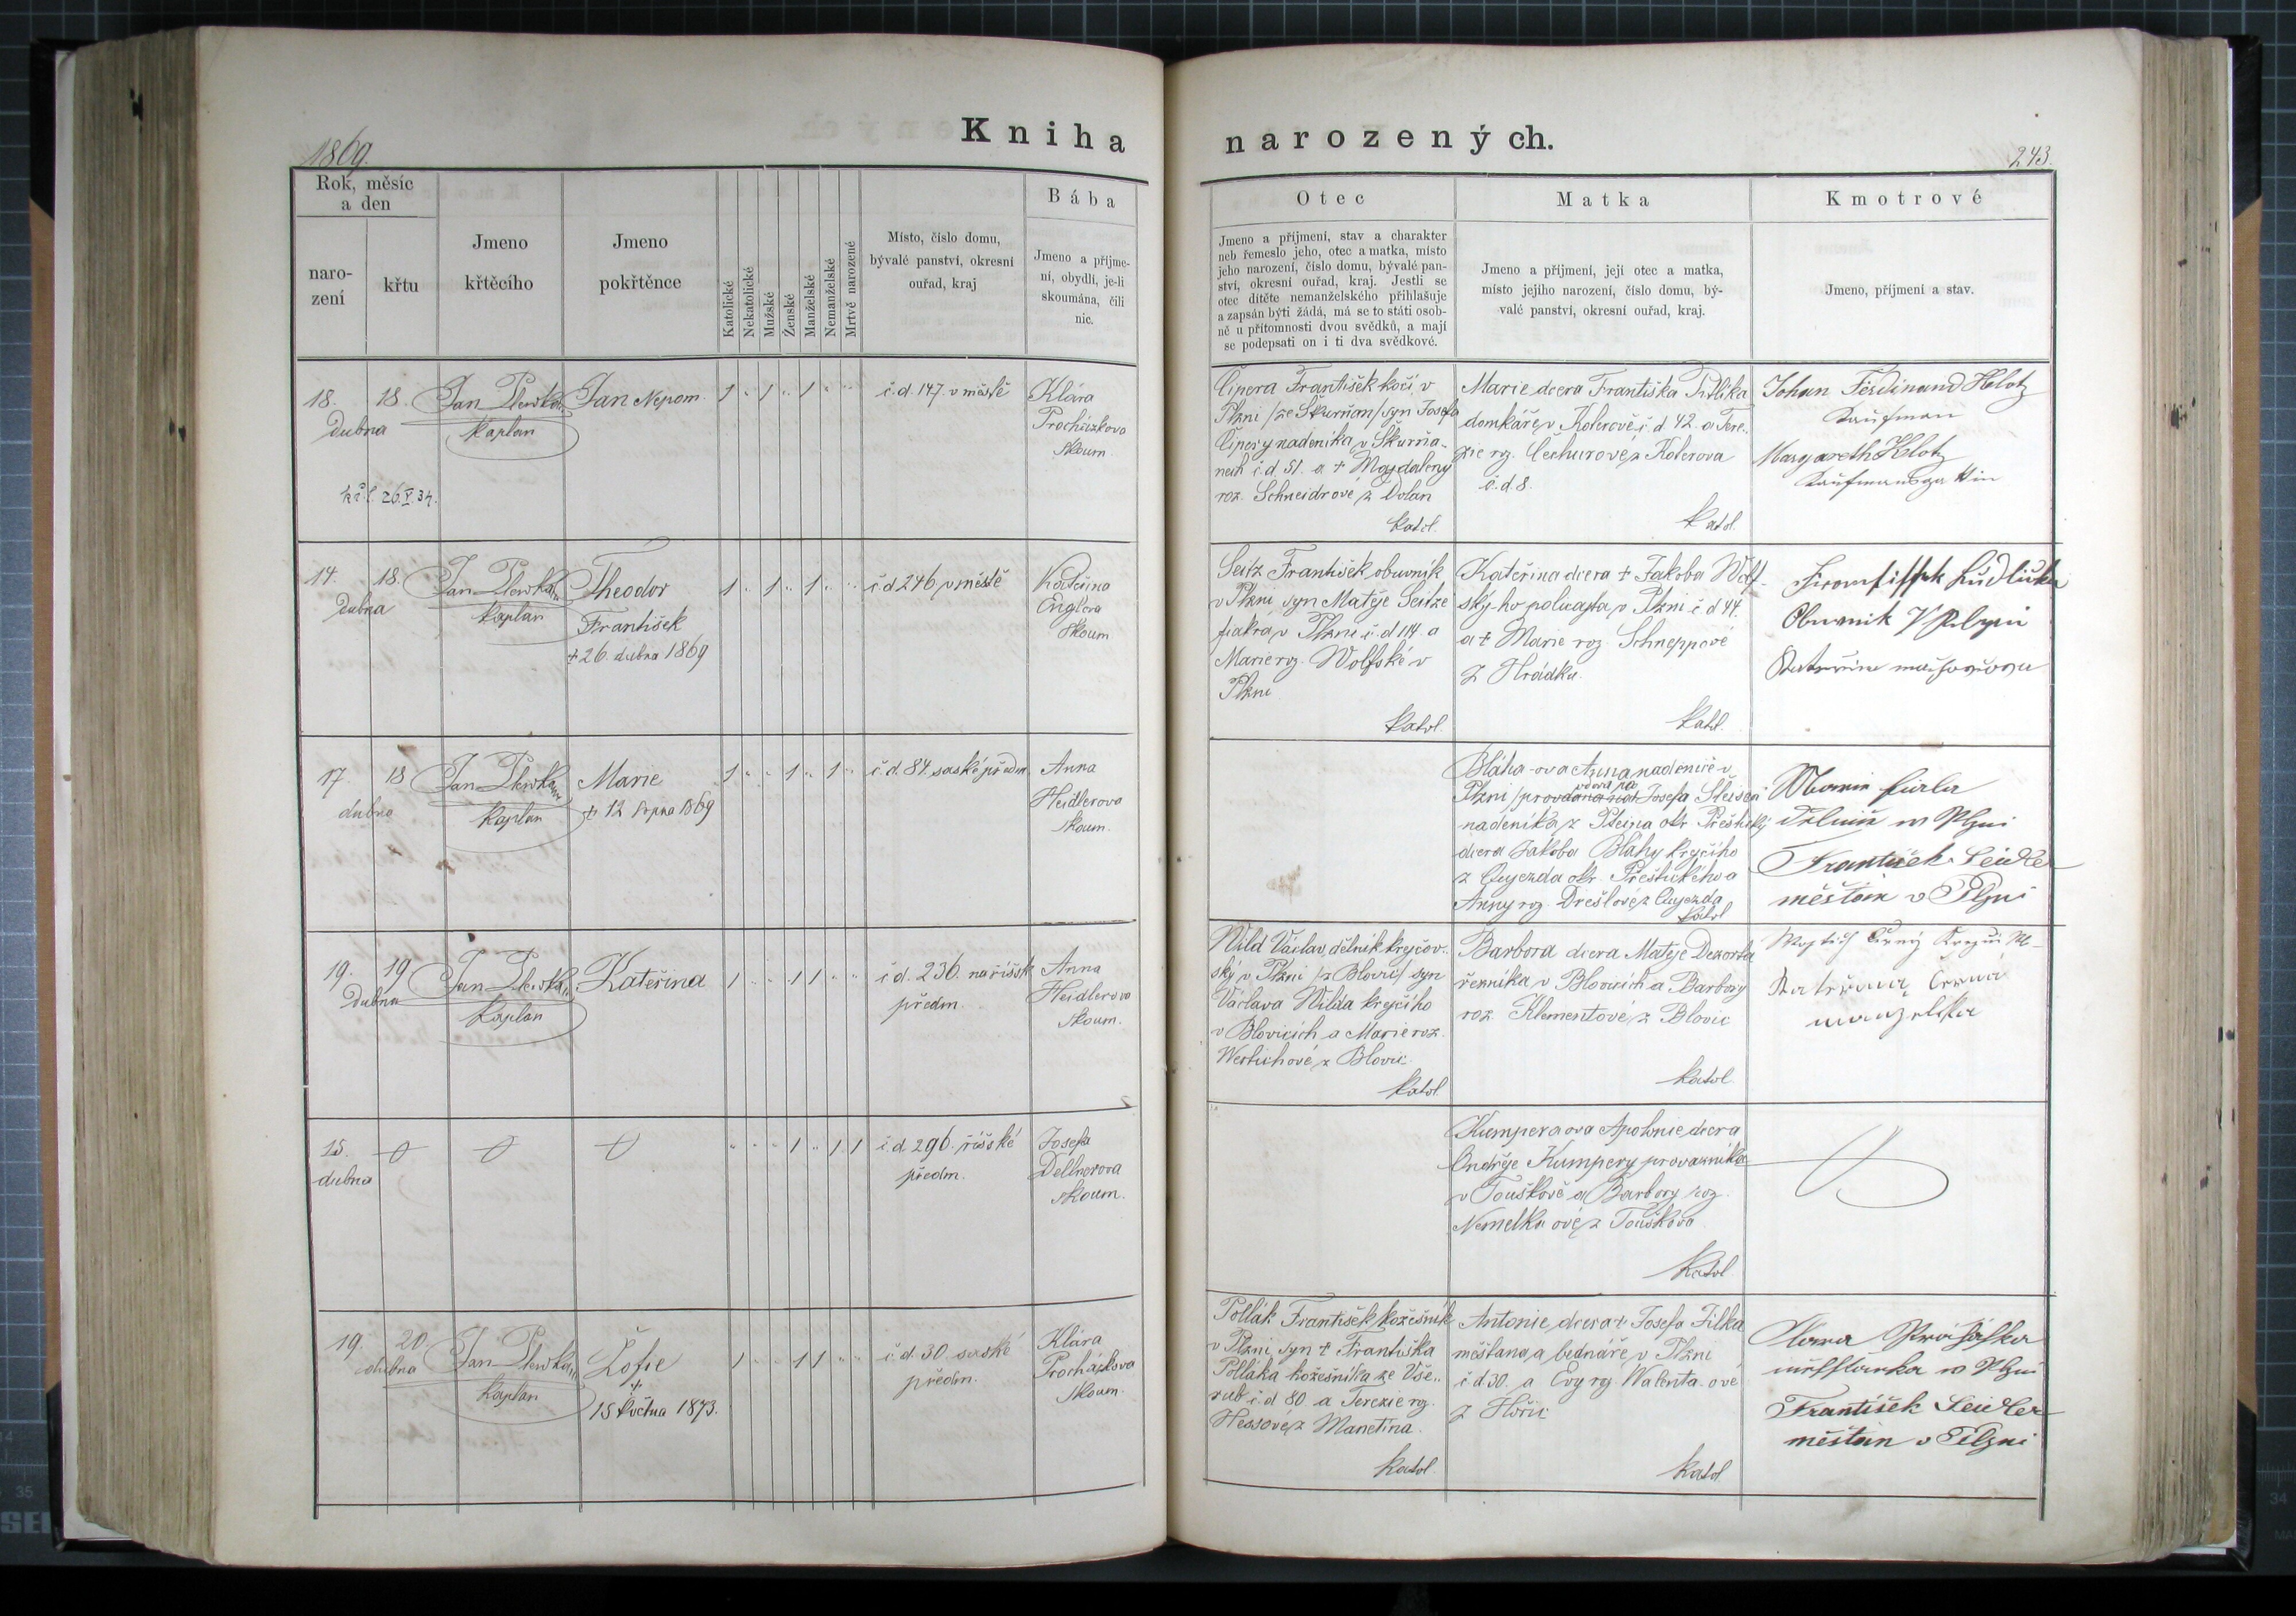 Kniha narozených.
1869.
243.
Rok, měsíc
a den
naro-
zení
křtu
Jmeno
křtěcího
Jmeno
pokřtěnce
Katolické
Nekatolické
Mužské
Ženské
Manželské
Nemanželské
Mrtvě narozené
Místo, číslo domu,
bývalé panství, okresní
ouřad, kraj
Bába
Jmeno a příjme-
ní, obydlí, je-li
skoumána, čili
nic.
Otec
Jmeno a příjmení, stav a charakter
neb řemeslo jeho, otec a matka, místo
jeho narození, číslo domu, bývalé pan-
ství, okresní ouřad, kraj. Jestli se
otec dítěte nemanželského přihlašuje
a zapsán býti žádá, má se to státi osob-
ně u přítomnosti dvou svědků, a mají
se podepsati on i ti dva svědkové.
Matka
Jmeno a příjmení, její otec a matka,
místo jejího narození, číslo domu, bý-
valé panství, okresní ouřad, kraj.
Kmotrové
Jmeno, příjmení a stav.
18. 18.
dubna
26.V.34.
Jan
kaplan
Jan Nepom.
1 " 1 " 1 " "
č.d. 147. v městě
Klára
Procházkova
skoum.
Čipera František kočí v
Plzni /ze Škurňan/ syn Josefa
Čipery nadeníka v Škurňa-
nech č.d 51. a + Magdaleny
roz. Schneidrové z Dolan
katol.
Marie dcera Františka
domkáře v Kolerově č.d 42. a Tere-
zie roz. Čechurové z Kolerova
č.d 8.
katol.
Johan Ferdinand Klotz
Kaufman
Margareth Klotz
Kaufmansgattin
14. 18.
dubna
Jan
kaplan
Theodor
František
+ 26. dubna 1869
1 " 1 " 1 " "
č.d 246 v městě
Kateřina
Englova
skoum
Seitz František obuvník
v Plzni syn Matěje Seitze
fiakra v Plzni č.d 114. a
Marie roz. Wolfské v
Plzni
katol.
Kateřina dcera + Jakoba Wolf-
ský-ho policajta v Plzni č.d 44.
a + Marie roz. Schneppové
z Hrádku.
katol.
Obuvnik V Plzni
17. 18
dubna
Jan
kaplan
Marie
+ 12 srpna 1869
1 " " 1 " 1 "
č.d. 84. saské předm.
Anna
Heidlerova
skoum.
Bláha-ova Anna nadenice v
Plzni /provdaná na vdova po Josefa
nadeníka z okr. Přeštický
dcera Jakoba Bláhy krejčího
z Oujezda okr. Přeštického a
Anny roz. Drešlové z Oujezda
katol
w Plzni
František Seidler
měštan v Plzni
19. 19
dubna
Jan
kaplan
Kateřina
1 " " 1 1 " "
č.d. 236. na říšsk
předm.
Anna
Heidlerova
skoum.
Wild Václav, dělník krejčov-
ský v Plzni /z Blovic/ syn
Václava Wilda krejčího
v Blovicích a Marie roz.
z Blovic.
katol
Barbora dcera Matěje Dezorta
řezníka v Blovicích a Barbory
roz. Klementové z Blovic
katol.
Černý
Kateřina Černá
manzelka
15.
dubna
" " " 1 " 1 1
č.d. 296. říšské
předm.
Josefa
Dellnerova
skoum.
Kumpera ova Apolonie dcera
Ondřeje Kumpery provazníka
v Touškově a Barbory roz.
z Touškova
katol
19. 20.
dubna
Jan
kaplan
Žofie
+
15 května 1873.
1 " " 1 1 " "
č.d. 30. saské
předm.
Klára
Procházkova
skoum.
Pollák František kožešník
v Plzni, syn + Františka
Polláka kožešníka ze Vše-
rub č.d 80 a Terezie roz.
Hessové z Manetína.
katol.
Antonie, dcera + Josefa Filka
měštana a bednáře v Plzni
č.d 30. a Evy roz. Walenta-ové
z Hořic
katol
w Plzni
František Seidler
měštan v Plzni